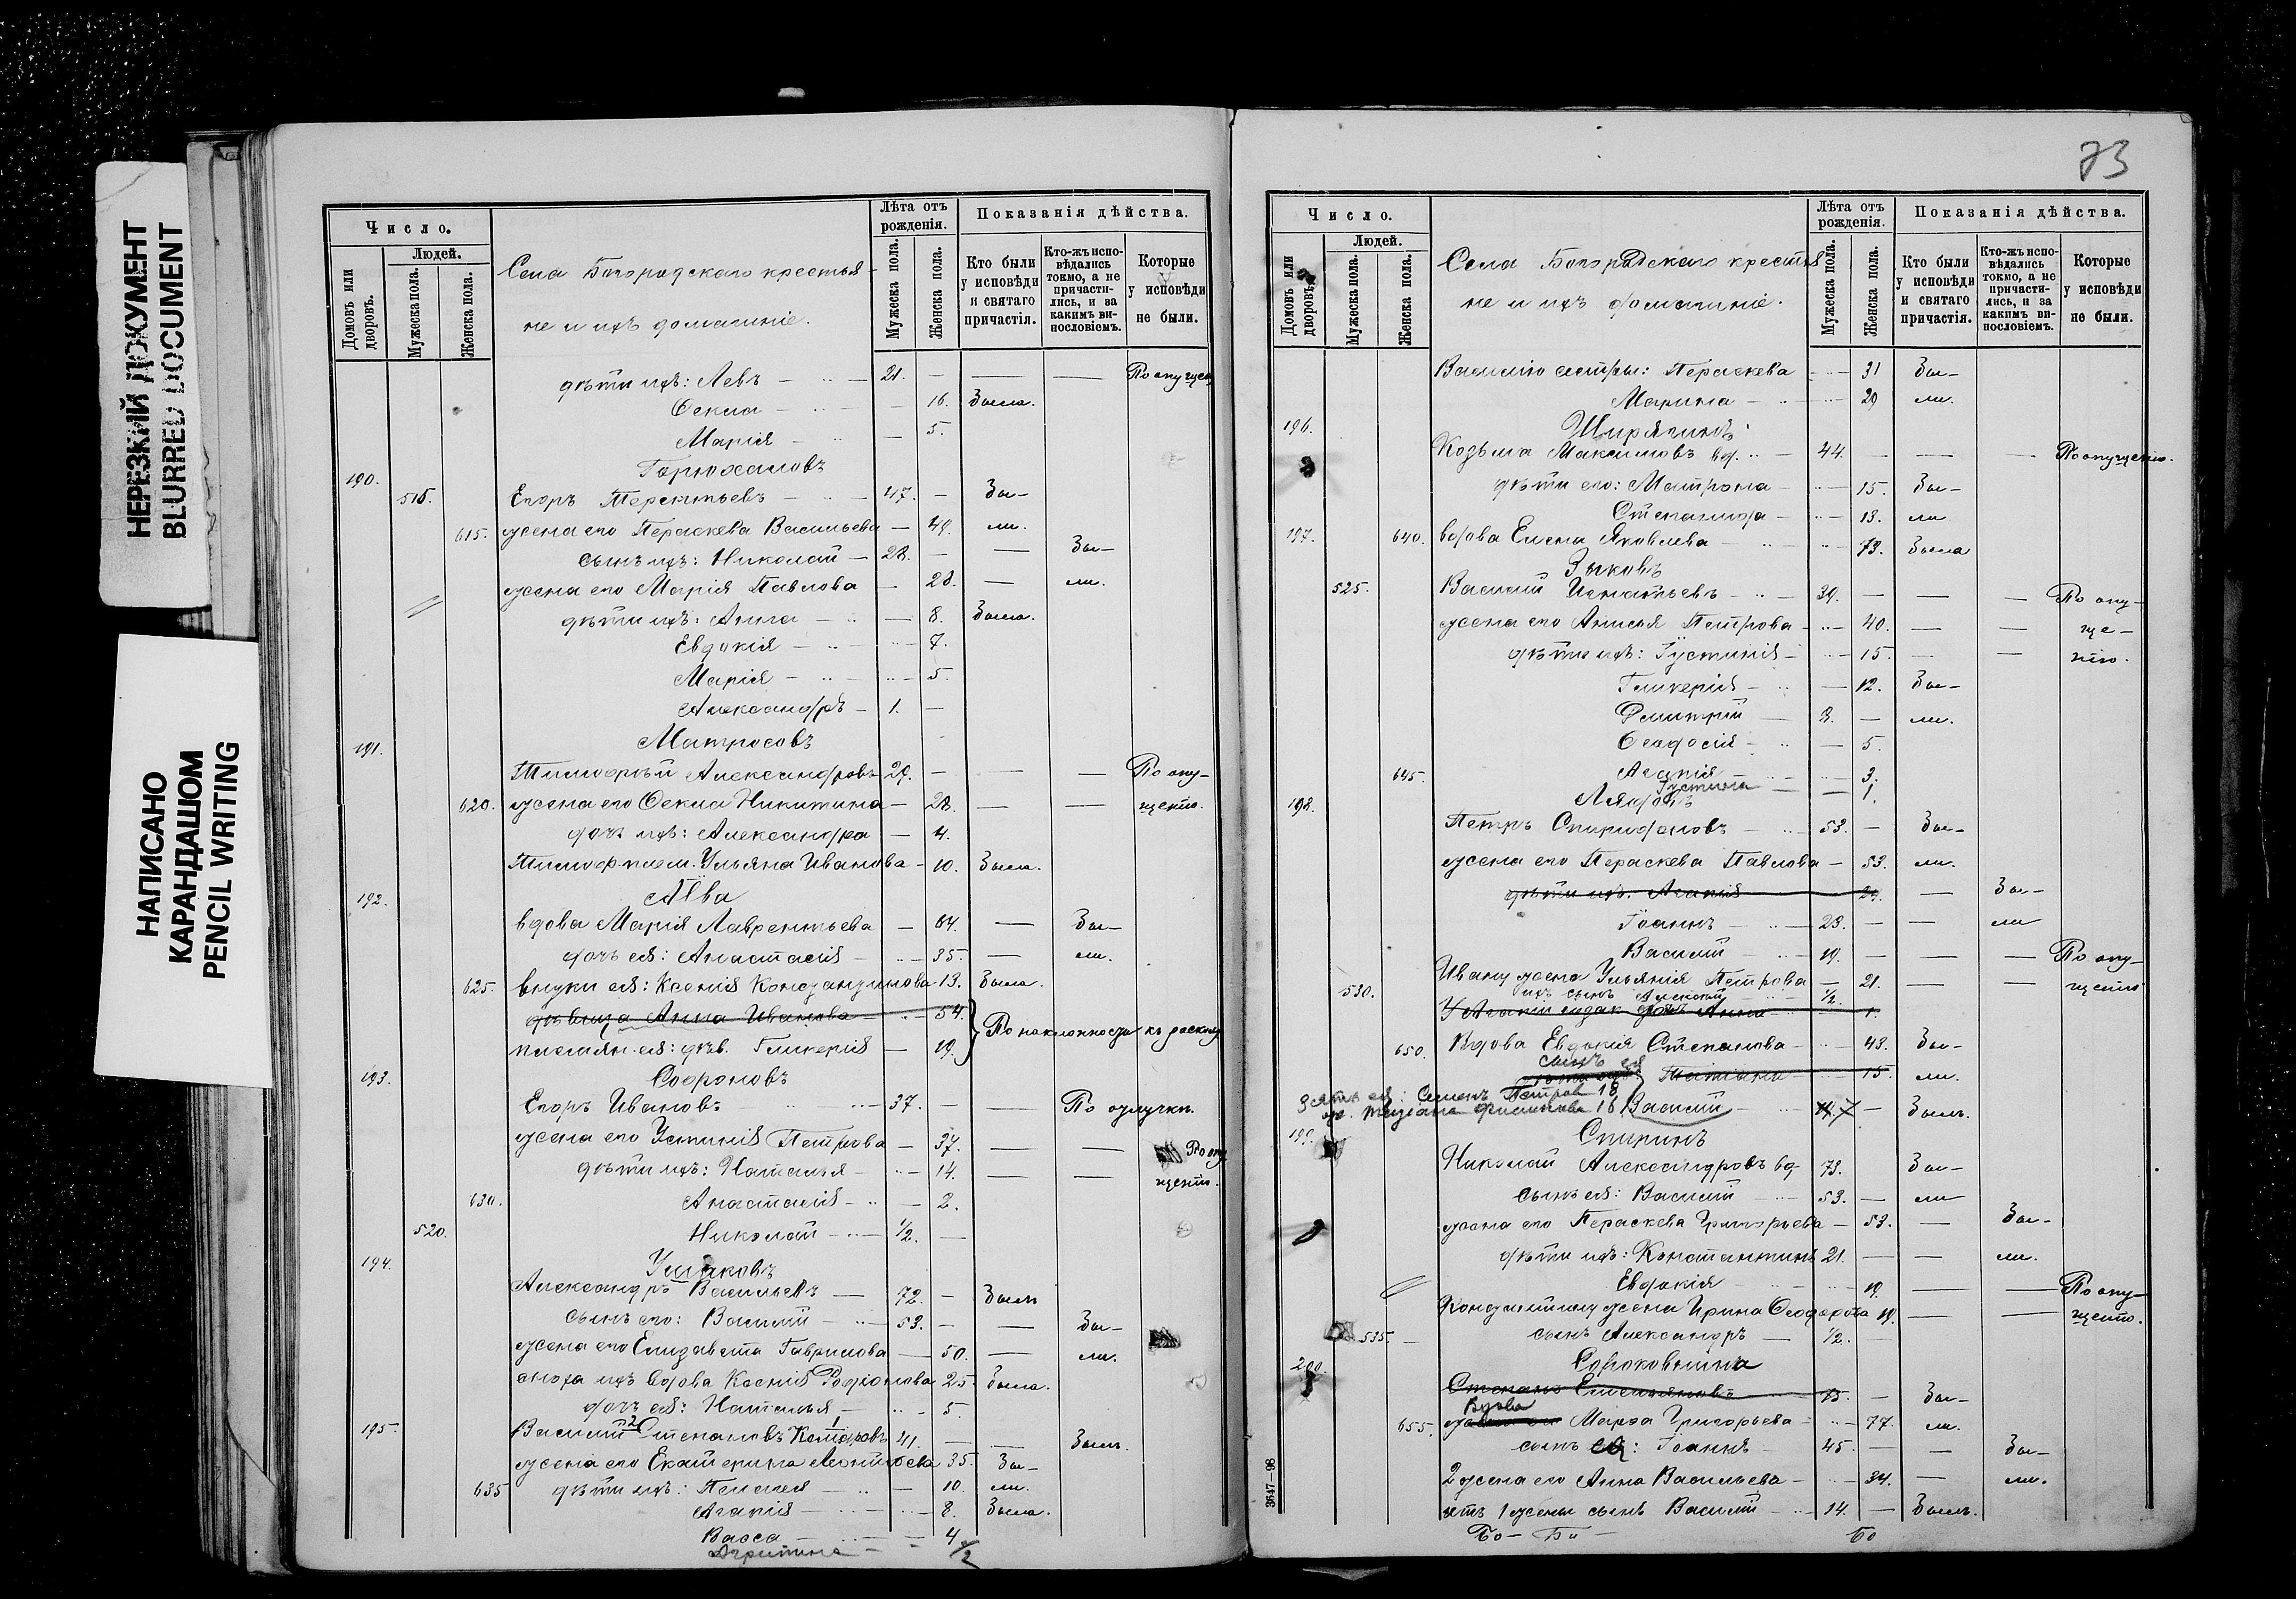 НЕРЕЗКИЙ ДОКУМЕНТ
BLURRED DOCUMENT
НАПИСАНО
КАРАНДАШОМ
PENCIL WRITING
Число.
Людей.
Домовъ или дворовъ.
Мужеска пола.
Женска пола.
Села Богородскаго крестья-
не и ихъ домашніе.
Лѣта отъ рожденія.
Мужеска пола.
Женска пола.
Показанія дѣйства.
Кто были у исповѣди и святаго причастія.
Кто-жъ исповѣдались токмо, а не причастились, и за какимъ винословіемъ.
Которые у исповѣди не были.
дѣти ихъ: Левъ 21. По опущен
Ѳекла 16. Была.
Марія 5.
190.
515. Егоръ Терентьевъ 47. Бы-
615. жена его Параскева Васильева 49. ли.
сынъ ихъ: Николай 28. Бы-
жена его Марія Павлова 28. ли.
дѣти ихъ: Анна 8. Была.
Евдокія 7.
Марія 5.
Александръ 1.
191. Матросовъ
Тимоѳей Александровъ 29. По опу-
620. жена его Ѳекла Никитина 28. щенію.
дочь ихъ: Александра 4.
Тимоф. плем. Ульяна Иванова 10. Была.
192.
вдова Марія Лаврентьева 64. Бы-
дочь ея: Анастасія 35. ли.
625. внуки ея: Ксенія Константинова 13. Была.
дѣвица Анна Иванова 54. По наклонности къ расколу
племян. ея: дѣв. Гликерія 19.
193. Софроновъ
Егоръ Ивановъ 37. По отлучкѣ.
жена его Устинія Петрова 37. По опу
дѣти ихъ: Наталья 14. щенію.
630. Анастасія 2.
520. Николай 1/2.
194. Ушаковъ
Александръ Васильевъ 72. Былъ
сынъ его: Василій 53. Бы-
жена его Елизавета Гаврилова 50. ли.
сноха ихъ вдова Ксенія Родіонова 25. Была.
дочь ея: Наталья 5.
195. Василій Степановъ 41. Былъ.
жена его Екатерина Леонтьева 35. Бы-
635 дѣти ихъ: Пелагея 10. ли.
Агапія 8. Была.
Васса 4
Агрипина 1/2
73
Число.
Людей.
Домовъ или дворовъ.
Мужеска пола.
Женска пола.
Села Богородскаго крестья
не и ихъ домашніе.
Лѣта отъ рожденія.
Мужеска пола.
Женска пола.
Показанія дѣйства.
Кто были у исповѣди и святаго причастія.
Кто-жъ исповѣдались токмо, а не причастились, и за какимъ винословіемъ.
Которые у исповѣди не были.
Василію сестры: Параскева 31 Бы-
Марина 29 ли.
196. Ширяпинъ
Козьма Максимовъ вд. 44. По опущенію.
дѣти его: Матрона 15. Бы-
Степанида 13. ли
197. 640. вдова Елена Яковлева 73. Была
Зыковъ
525. Василій Игнатьевъ 39. По опу-
жена его Анисья Петрова 40. ще-
дѣти ихъ: Іустинія 15. нію.
Гликерія 12. Бы-
Дмитрій 8. ли.
Ѳеодосія 5.
645. Агапія 3.
Іустина 1.
198.
Петръ Спиридоновъ 53. Бы-
жена его Параскева Павлова 53. ли.
дѣти ихъ: Агапія 24. Бы-
Іоаннъ 23. ли
Василій 19. По опу-
Ивану жена Ульянія Петрова 21. щенію
530. ихъ сынъ Алексѣй 1/2.
1.
650. Вдова Евдокія Степанова 43. Бы-
сынъ ея
Татьяна 15. ли.
Зять ея: Семенъ Петров 18
ж. Татьяна Филипова 16 Василій 7 Былъ.
199. Спиринъ
Николай Александровъ вд. 73. Бы-
сынъ ея: Василій 53. ли
жена его Параскева Григорьева 53. Бы-
дѣти ихъ: Константинъ 21. ли.
Евдокія 19. По опу-
Константину жена Ирина Ѳеодорова 19. щенію.
535. сынъ Александръ 1/2.
200.
Степанъ Емельяновъ 75. Бы-
Вдова
655. Марѳа Григорьева 77. ли.
сынъ ея: Іоаннъ 45. Бы-
2 жена его Анна Васильева 34. ли.
отъ 1 жены сынъ Василій 14. Былъ.
Бо- Би- Бо
3647-98